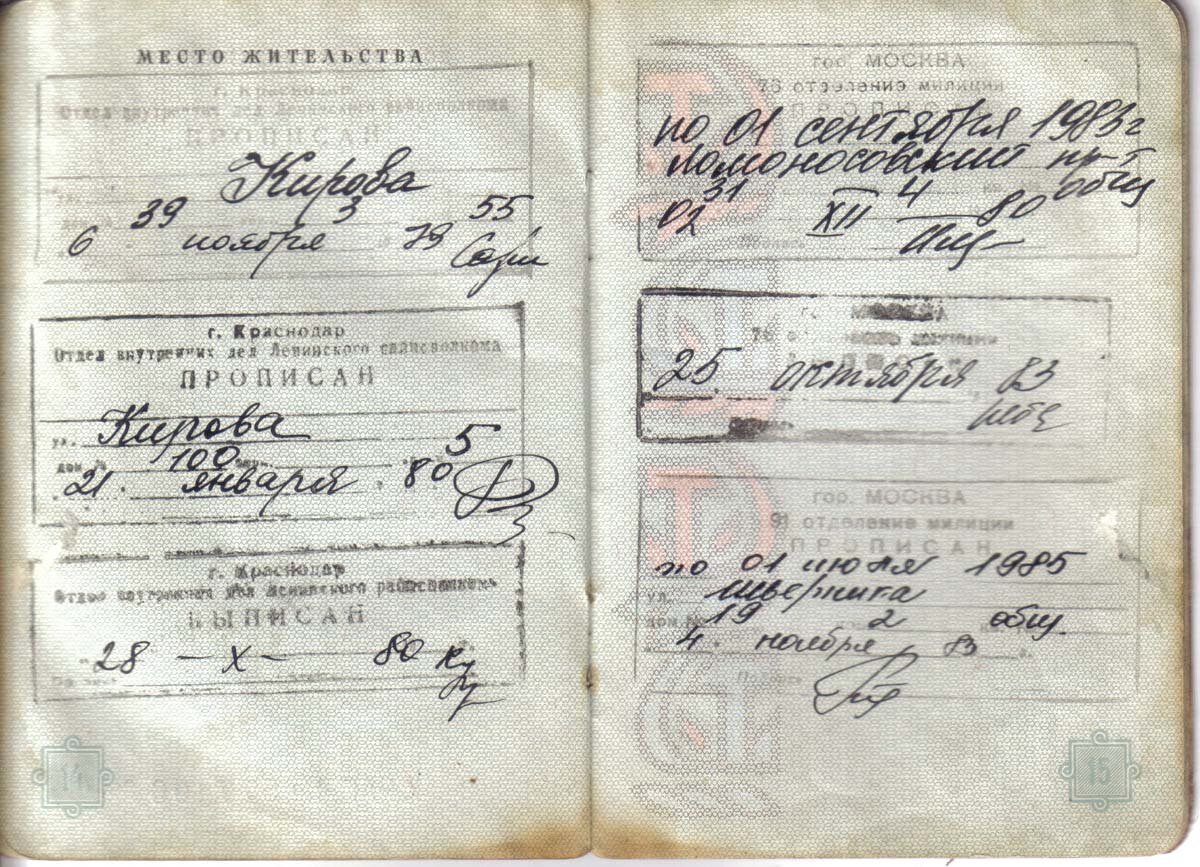 МЕСТО ЖИТЕЛЬСТВА
г. Краснодар
Отдел внутренних дел Ленинского райисполкома
ПРОПИСАН
Кирова
39 3 55
6 ноября 79
г. Краснодар
Отдел внутренних дел Ленинского райисполкома
ПРОПИСАН
ул. Кирова
дом № 100 5
21. января 80
г. Краснодар
Отдел внутренних дел Ленинского райисполкома
ВЫПИСАН
28 — X — 80
14
гор. МОСКВА
76 отделение милиции
ПРОПИСАН
по 01 сентября 1983 г
Ломоносовский пр-т
31 4 общ
02 XII 80
Подпись
МОСКВА
25. октября 83
гор. МОСКВА
91 отделение милиции
ПРОПИСАН
по 01 июля 1985
ул. Шверника
дом № 19 2 общ.
4. ноября 83 г.
Подпись
15